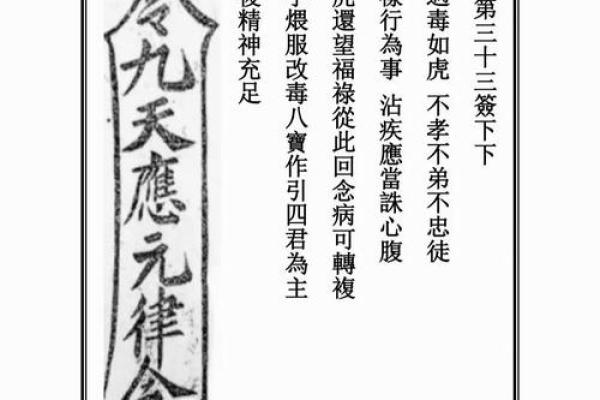 第三十三簽下下
毒如虎 不孝不弟不忠徒
樣行為事 沾疾應當誅心腹
還望福祿從此回念病可轉複
煨服改毒八寶作引四君為主
精神充足
令九天應元律令